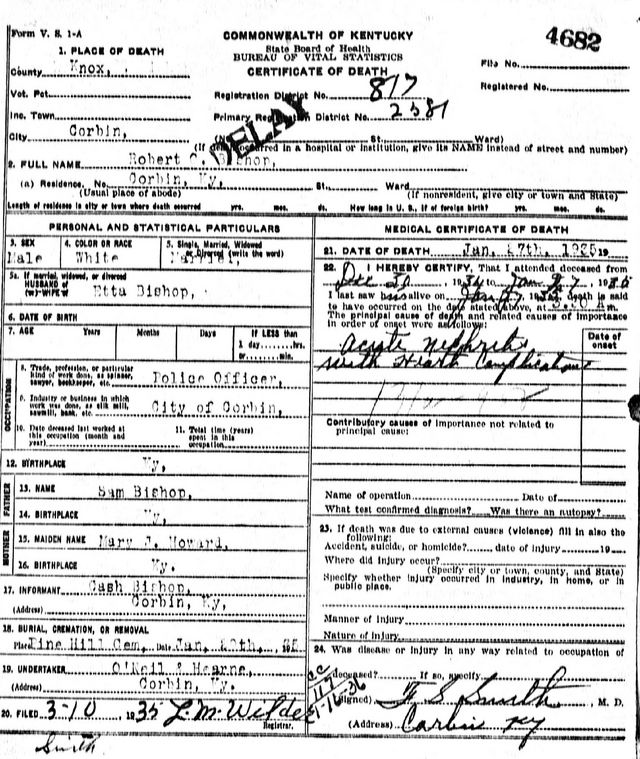 Form V. S. 1-A
COMMONWEALTH OF KENTUCKY
State Board of Health
BUREAU OF VITAL STATISTICS
CERTIFICATE OF DEATH
4682
File No.
Registered No.
1. PLACE OF DEATH
County Knox,
Vot. Pct.
Inc. Town
City Corbin,
Registration District No. 817
Primary Registration District No. 2381
DELAY
(No. St. Ward)
(If death occurred in a hospital or institution, give its NAME instead of street and number)
2. FULL NAME Robert C. Bishop,
(a) Residence, No. Corbin, Ky, St. Ward
(Usual place of abode) (If nonresident, give city or town and State)
Length of residence in city or town where death occurred yrs. mos. ds. How long in U. S., if of foreign birth? yrs. mos. ds.
PERSONAL AND STATISTICAL PARTICULARS
3. SEX
Male
4. COLOR OR RACE
White
5. Single, Married, Widowed
or Divorced (write the word)
Married,
5a. If married, widowed, or divorced
HUSBAND of
(or) WIFE of Etta Bishop,
6. DATE OF BIRTH
7. AGE Years Months Days If LESS than
1 day hrs.
or min.
OCCUPATION
8. Trade, profession, or particular
kind of work done, as spinner,
sawyer, bookkeeper, etc. Police Officer,
9. Industry or business in which
work was done, as silk mill,
sawmill, bank, etc. City of Corbin,
10. Date deceased last worked at
this occupation (month and
year)
11. Total time (years)
spent in this
occupation
12. BIRTHPLACE Ky,
FATHER
13. NAME Sam Bishop,
14. BIRTHPLACE Ky,
MOTHER
15. MAIDEN NAME Mary J. Howard,
16. BIRTHPLACE Ky.
17. INFORMANT Cash Bishop,
(Address) Corbin, Ky,
18. BURIAL, CREMATION, OR REMOVAL
Place Pine Hill Cem, Date Jan,
19. UNDERTAKER O'Neil & Hearne,
(Address) Corbin, Ky.
20. FILED 3-10 1935 L. M. Wilde
Registrar.
Smith
MEDICAL CERTIFICATE OF DEATH
21. DATE OF DEATH Jan. 27th, 1935
22. I HEREBY CERTIFY, That I attended deceased from
I last saw alive on death is said
to have occurred on the date stated above, at m.
The principal cause of death and related causes of importance
in order of onset were as follows:
Date of
onset
acute nephritis
with Heart Complications
Contributory causes of importance not related to
principal cause:
Name of operation Date of
What test confirmed diagnosis? Was there an autopsy?
23. If death was due to external causes (violence) fill in also the
following:
Accident, suicide, or homicide? date of injury 19
Where did injury occur?
(Specify city or town, county, and State)
Specify whether injury occurred in industry, in home, or in
public place.
Manner of Injury
Nature of Injury
24. Was disease or injury in any way related to occupation of
deceased? If so, specify
(Signed) Smith M. D.
(Address) Corbin Ky